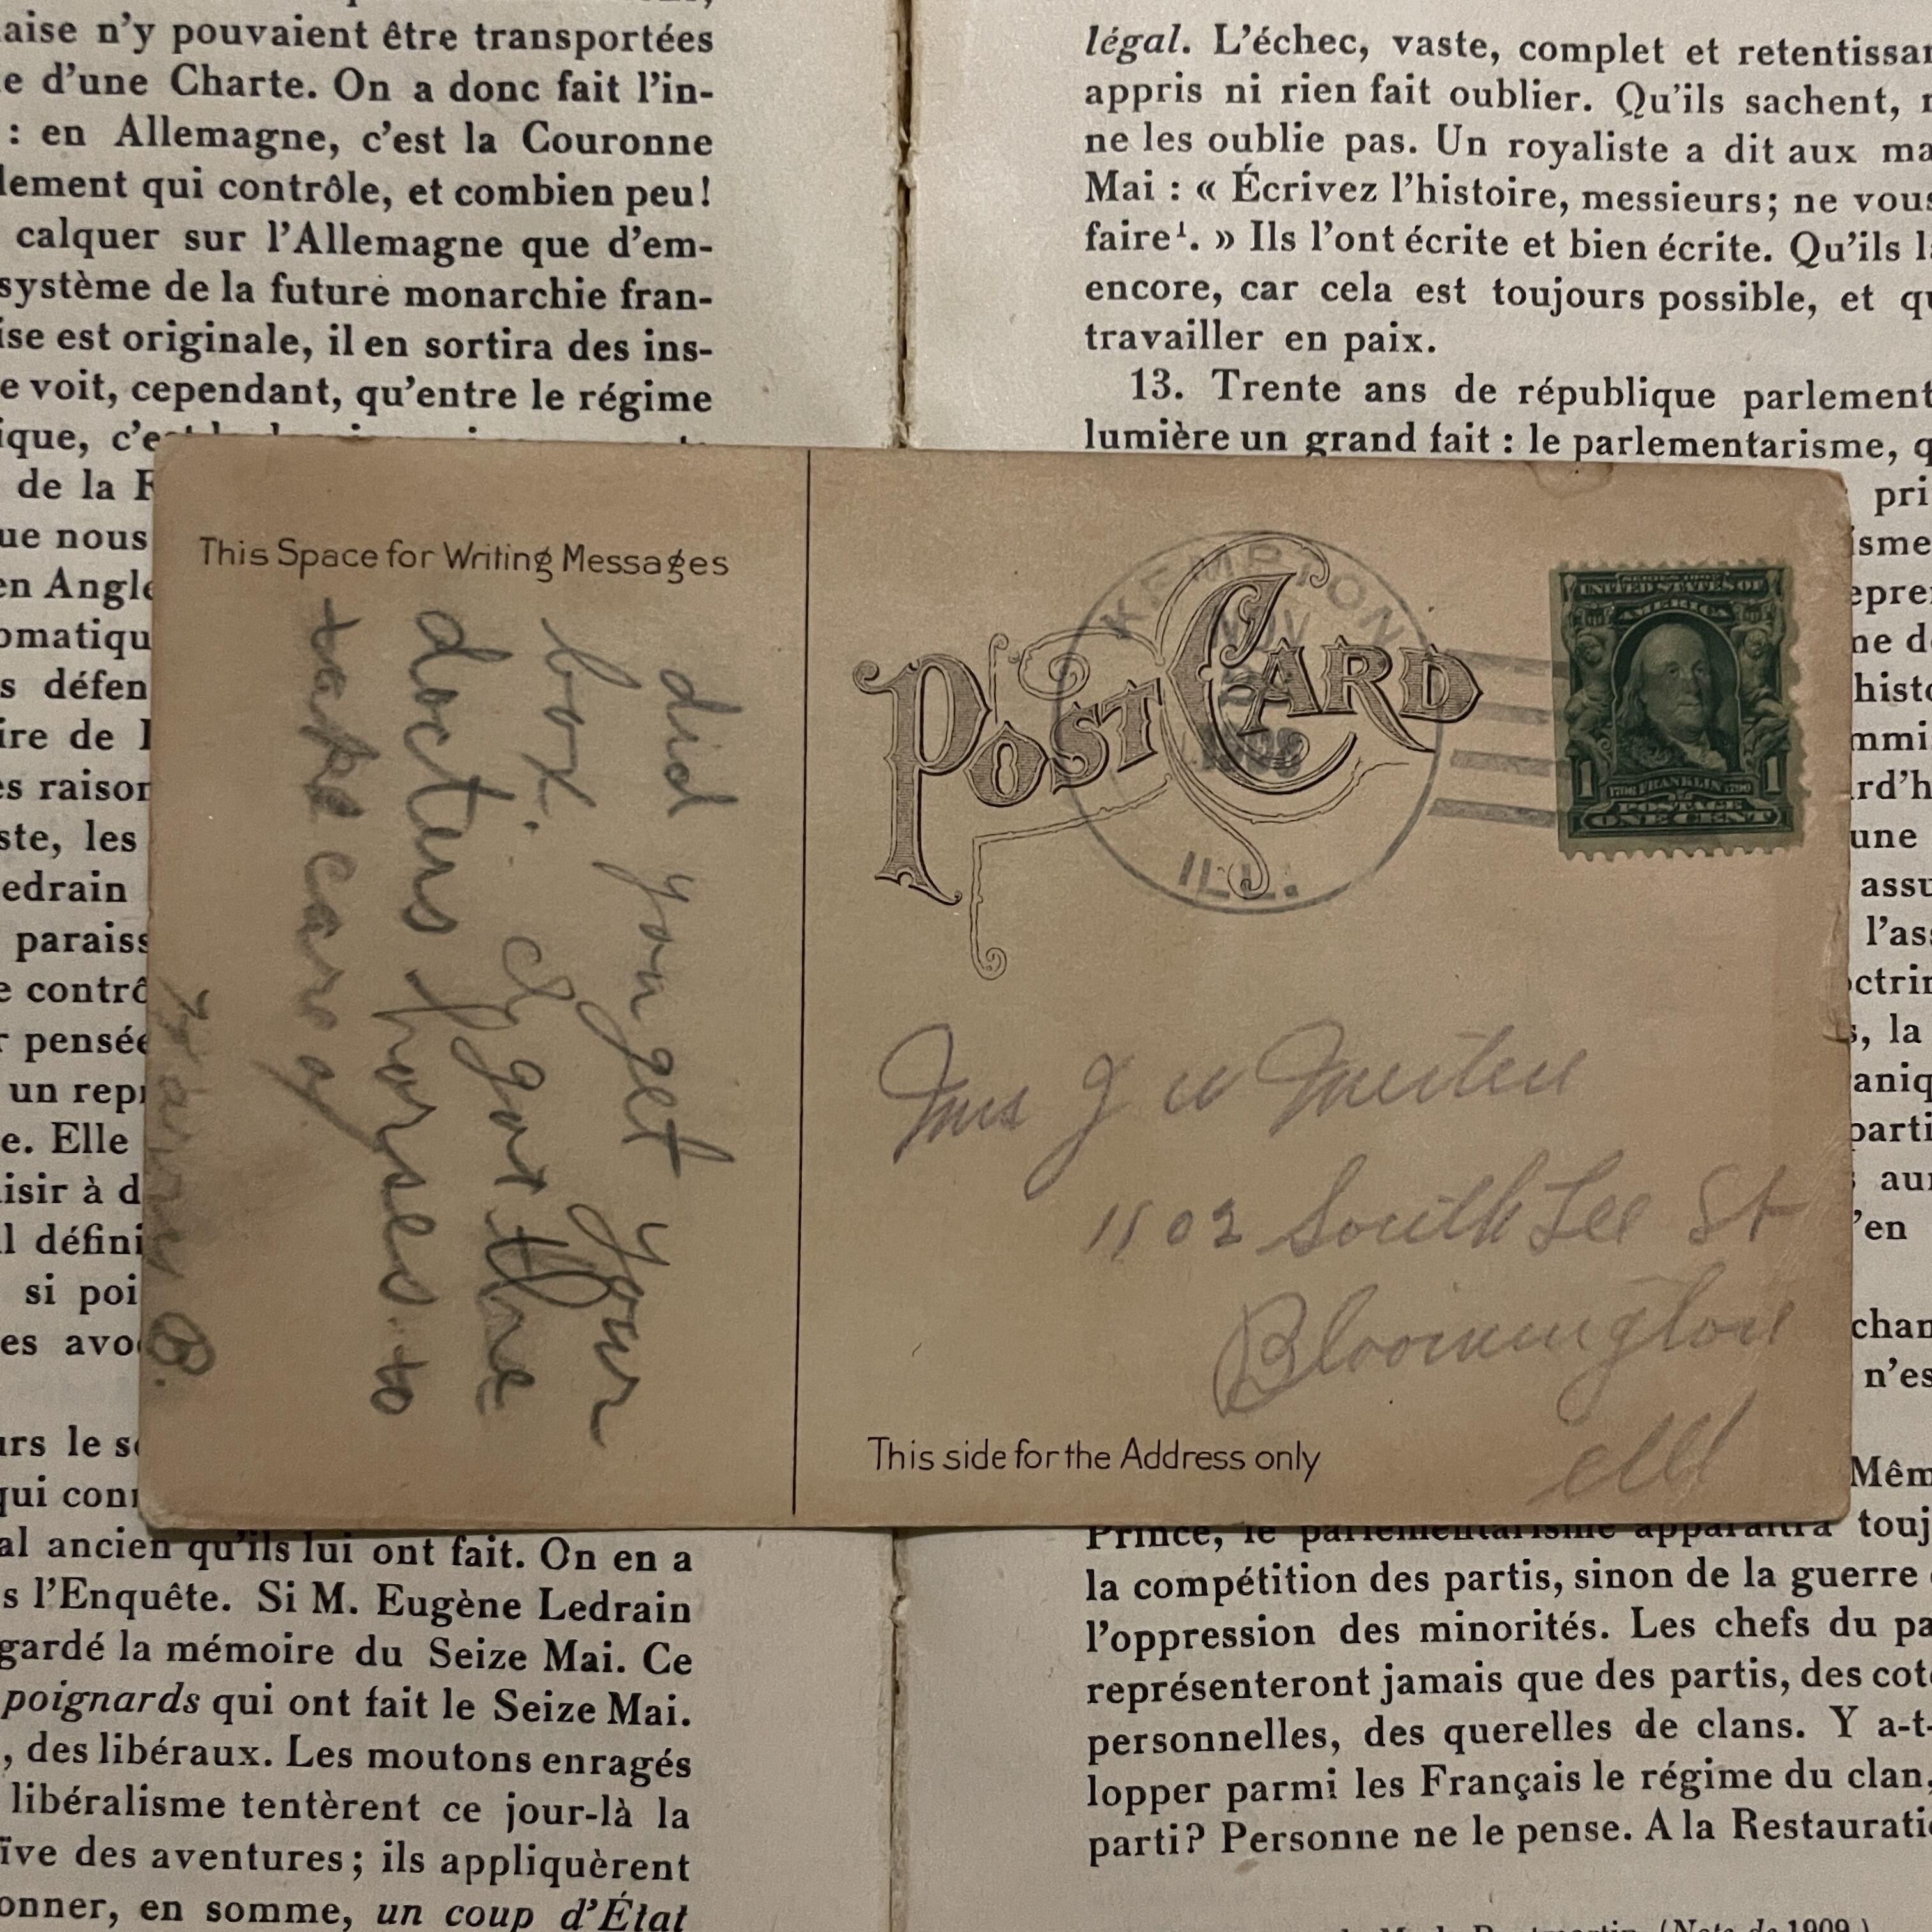 aise n'y pouvaient être transportées
e d'une Charte. On a donc fait l'in-
: en Allemagne, c'est la Couronne
lement qui contrôle, et combien peu!
calquer sur l'Allemagne que d'em-
système de la future monarchie fran-
ise est originale, il en sortira des ins-
e voit, cependant, qu'entre le régime
ique, c'e
de la F
ue nous
en Angle
omatiqu
s défen
ire de
es raison
ste, les
edrain
paraiss
e contrô
r pensée
un repr
e. Elle
isir à d
l défini
si poi
es avo
urs le s
qui conn
al ancien qu'ils lui ont fait. On en a
s l'Enquête. Si M. Eugène Ledrain
gardé la mémoire du Seize Mai. Ce
poignards qui ont fait le Seize Mai.
, des libéraux. Les moutons enragés
libéralisme tentèrent ce jour-là la
ïve des aventures; ils appliquèrent
onner, en somme, un coup d'État
légal. L'échec, vaste, complet et retentissan
appris ni rien fait oublier. Qu'ils sachent,
ne les oublie pas. Un royaliste a dit aux ma
Mai : « Écrivez l'histoire, messieurs; ne vous
faire¹. » Ils l'ont écrite et bien écrite. Qu'ils l
encore, car cela est toujours possible, et qu
travailler en paix.
13. Trente ans de république parlement
lumière un grand fait : le parlementarisme, q
pri
isme
epre
me d
histo
mmi
rd'h
une
assu
l'ass
octrin
s, la
aniq
parti
aur
'en
chan
n'es
Mêm
Prince, le parlementarisme apparaîtra touj
la compétition des partis, sinon de la guerre
l'oppression des minorités. Les chefs du pa
représenteront jamais que des partis, des cote
personnelles, des querelles de clans. Y a-t-
lopper parmi les Français le régime du clan,
parti? Personne ne le pense. A la Restauratio
(Note de 1909.)
This Space for Writing Messages
did you get your
box. I got the
doctors horses to
take care of
B.
POST CARD
KEMPTON
NOV
ILL.
SERIES 1902
UNITED STATES OF
AMERICA
1706 FRANKLIN 1790
POSTAGE
1 ONE CENT 1
Mrs J W
1102 South Lee St
Bloomington
Ill
This side for the Address only